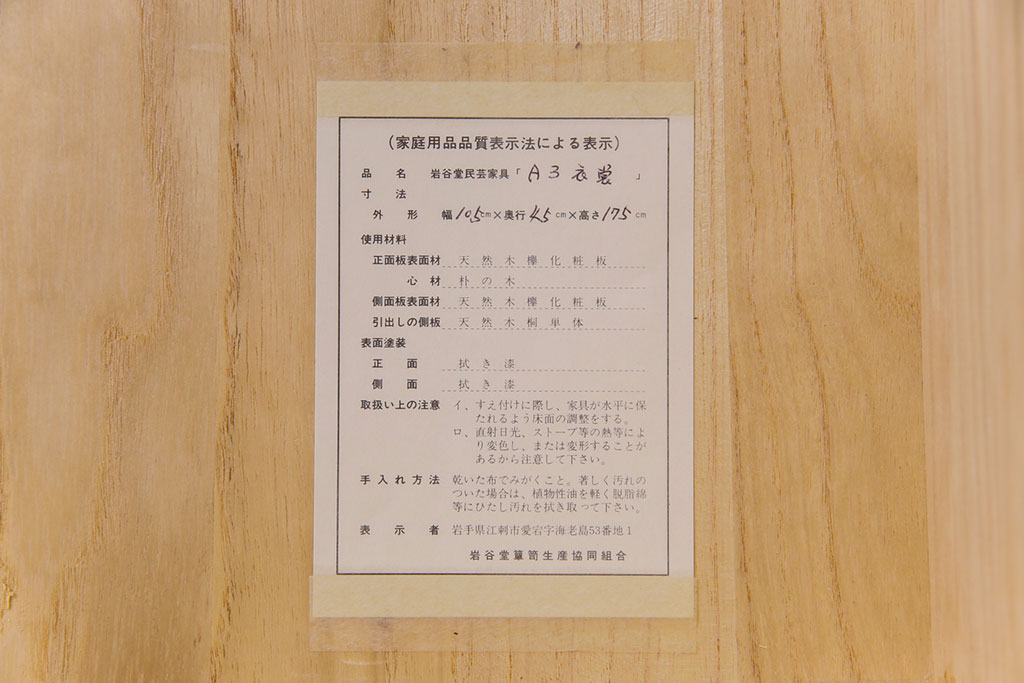 (家庭用品品質表示法による表示)
品名 岩谷堂民芸家具「A3衣裳」
寸法
外形 幅105cm×奥行45cm×高さ175cm
使用材料
正面板表面材 天然木欅化粧板
心材 朴の木
側面板表面材 天然木欅化粧板
引出しの側板 天然木桐単体
表面塗装
正面 拭き漆
側面 拭き漆
取扱い上の注意 イ、すえ付けに際し、家具が水平に保
たれるよう床面の調整をする。
ロ、直射日光、ストーブ等の熱等によ
り変色し、または変形することが
あるから注意して下さい。
手入れ方法 乾いた布でみがくこと。著しく汚れの
ついた場合は、植物性油を軽く脱脂綿
等にひたし汚れを拭き取って下さい。
表示者 岩手県江刺市愛宕字海老島53番地1
岩谷堂簞笥生産協同組合